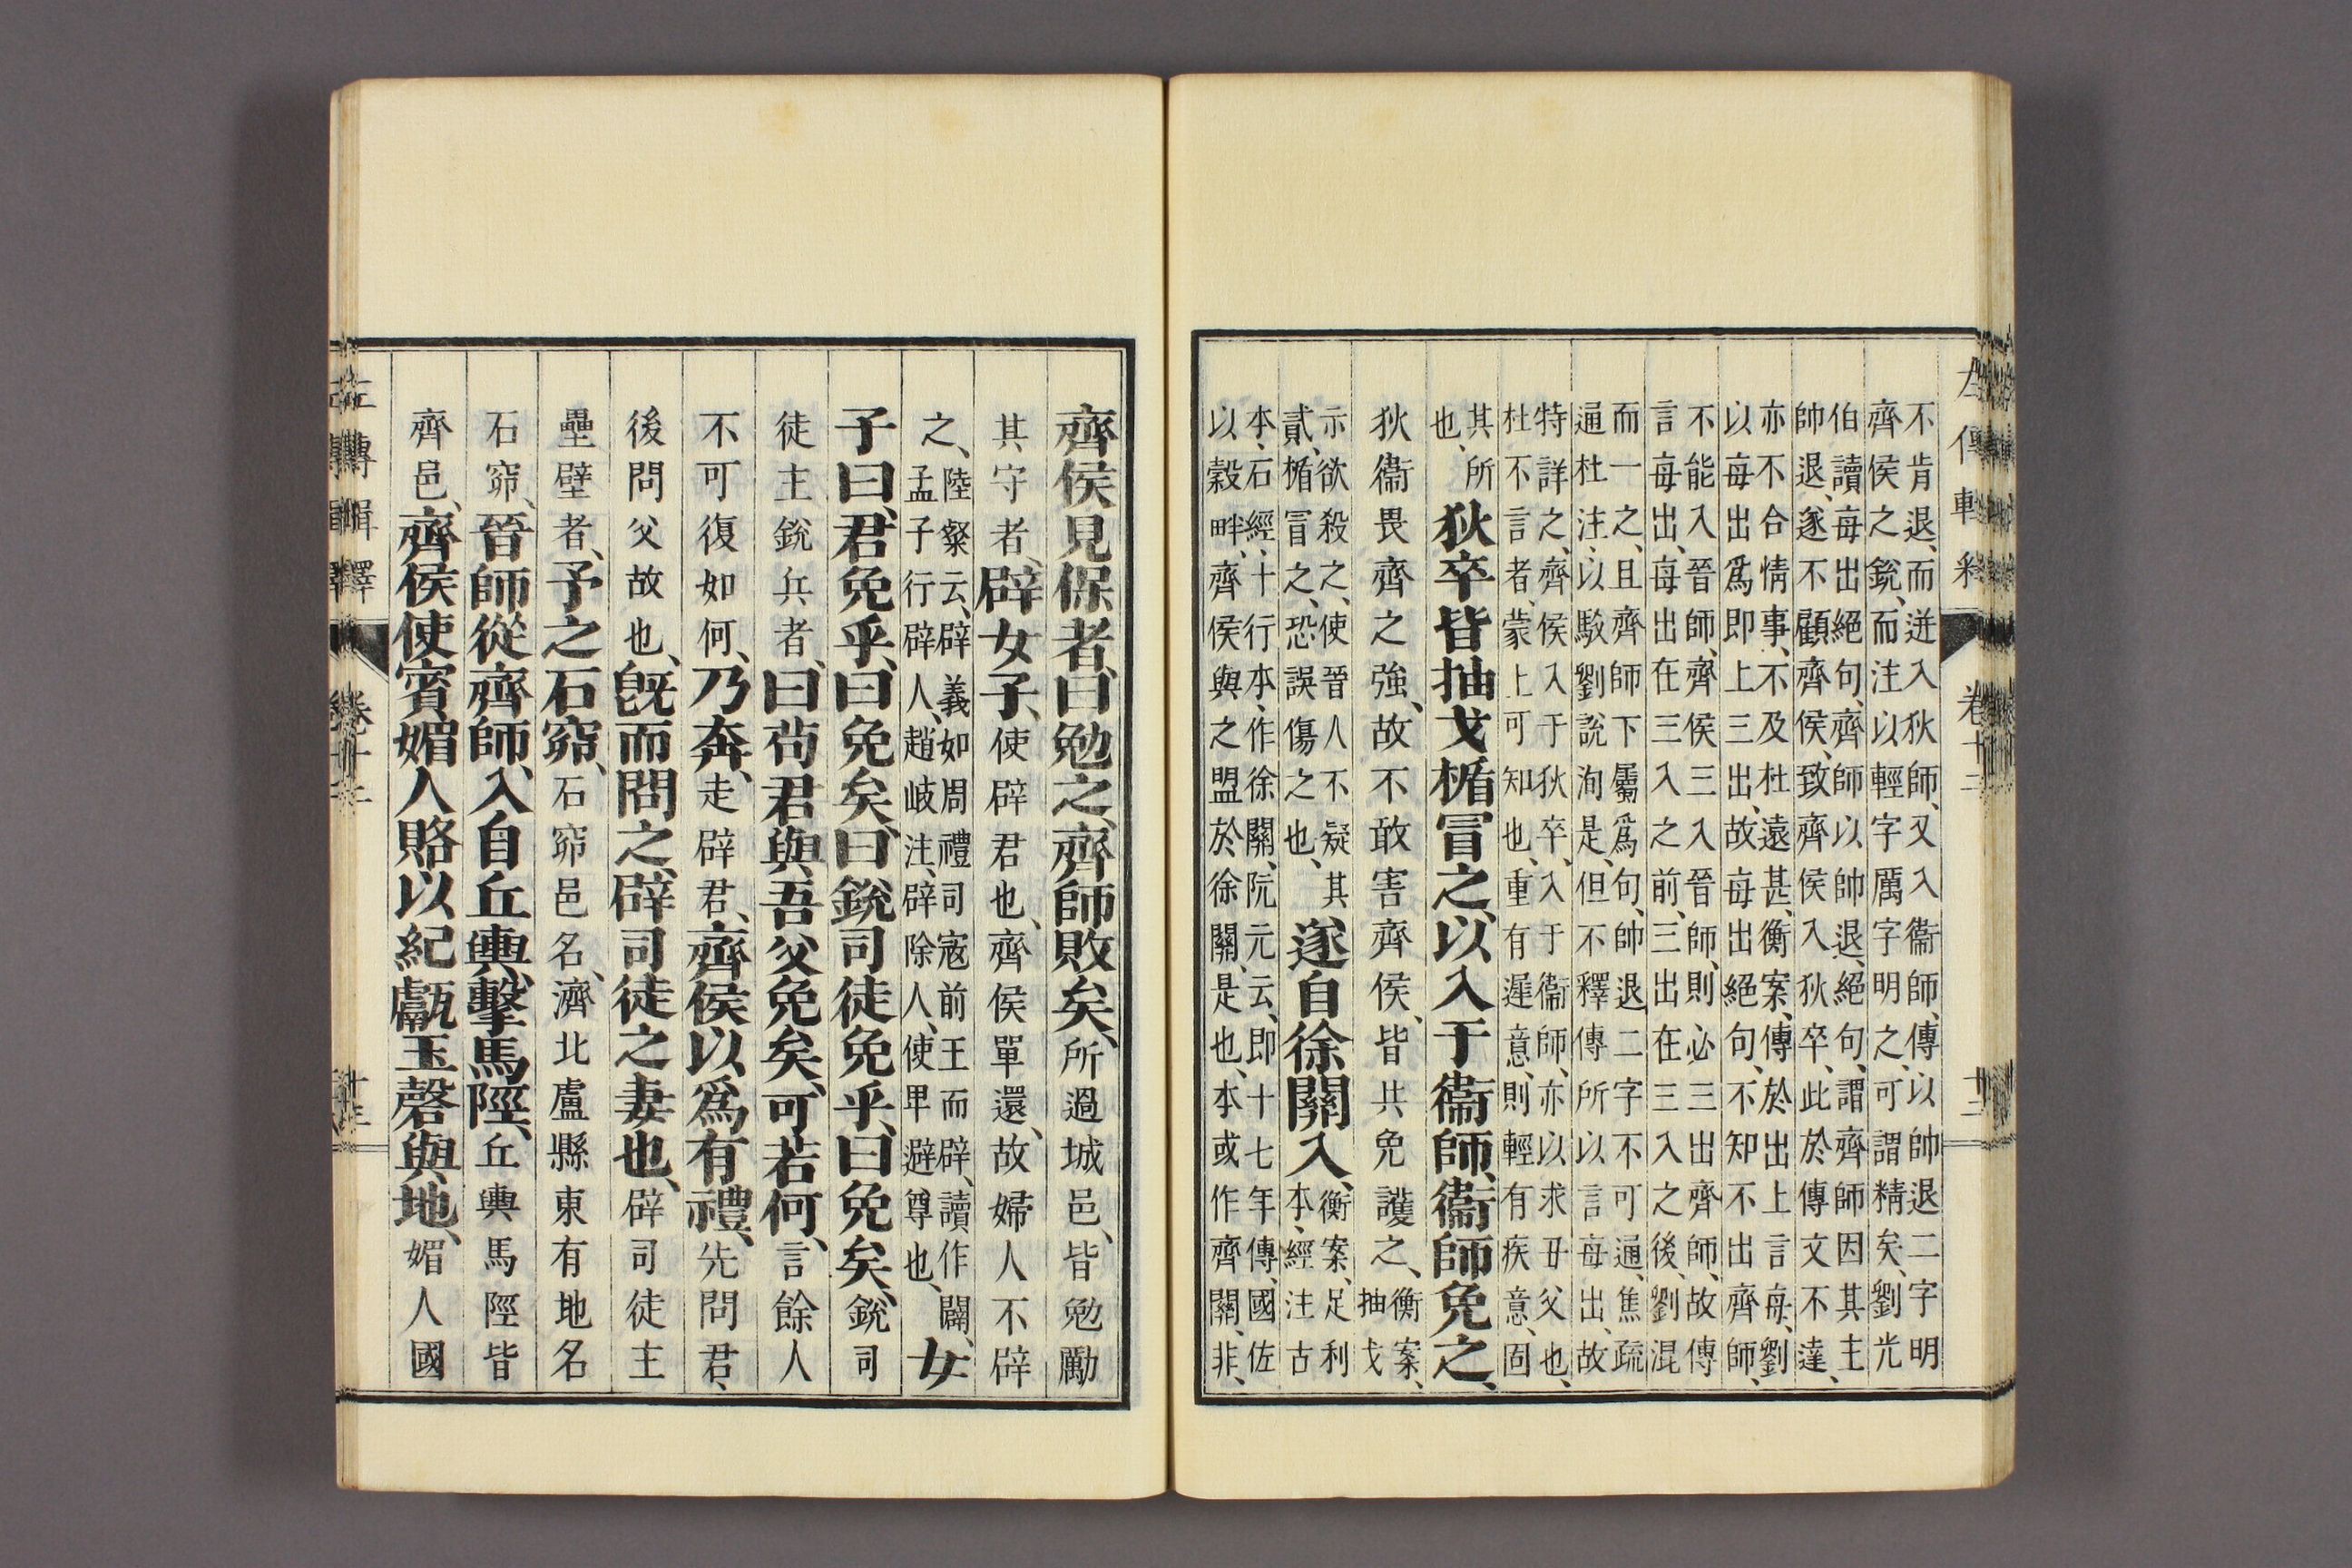 不肯退、而迸入狄師、又入衞師、傳以帥退二字明
齊侯之銳、而注以輕字厲字明之、可謂精矣、劉光
伯讀毎出絕句、齊師以帥退、絕句、謂齊師因其主
帥退、遂不顧齊侯、致齊侯入狄卒、此於傳文不達、
亦不合情事、不及杜遠甚、衡案、傳於出上言毎、劉
以毎出爲即上三出、故毎出絕句、不知不出齊師、
不能入晉師、齊侯三入晉師、則必三出齊師、故傳
言毎出、毎出在三入之前、三出在三入之後、劉混
而一之、且齊師下屬爲句、帥退二字不可通、焦疏
通杜注、以駁劉說洵是、但不釋傳所以言毎出、故
特詳之、齊侯入于狄卒、入于衞師、亦以求丑父也、
杜不言者、蒙上可知也、重有遲意、則輕有疾意、固
其所
也、
狄卒皆抽戈楯冒之、以入于衞師、衞師免之、
狄衞畏齊之強、故不敢害齊侯、皆共免護之、
衡案、
抽戈
示欲殺之、使晉人不疑其
貳、楯冒之、恐誤傷之也、
遂自徐關入、
衡案、足利
本、經注古
本、石經、十行本、作徐關、阮元云、即十七年傳、國佐
以穀畔、齊侯與之盟於徐關、是也、本或作齊關、非、
左傳輯釋 卷十二
齊侯見保者、曰勉之、齊師敗矣、所過城邑、皆勉勵
其守者、辟女子、使辟君也、齊侯單還、故婦人不辟
之、
陸粲云、辟義如周禮司寇前王而辟、讀作闢、
孟子行辟人、趙岐注、辟除人、使卑避尊也、
女
子曰、君免乎、曰免矣、曰銳司徒免乎、曰免矣、銳司
徒主銳兵者、曰苟君與吾父免矣、可若何、言餘人
不可復如何、乃奔、走辟君、齊侯以爲有禮、先問君、
後問父故也、旣而問之、辟司徒之妻也、辟司徒主
壘壁者、予之石窌、石窌邑名、濟北盧縣東有地名
石窌、晉師從齊師、入自丘輿、擊馬陘、丘輿馬陘皆
齊邑、齊侯使賓媚人賂以紀甗玉磬與地、媚人國
左傳輯釋 卷十二